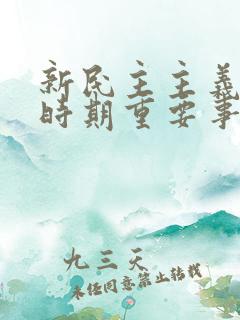 新民主主義
時期重要事
九三天
未经同意禁止转载